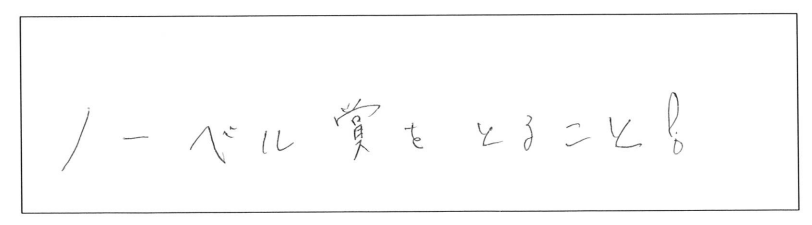 ノーベル賞をとること!